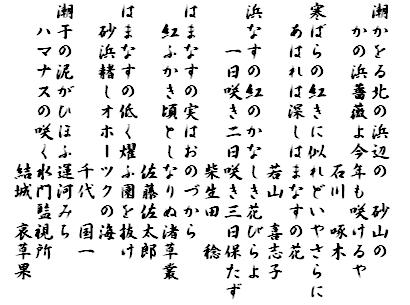 潮かをる北の浜辺の　砂山の
かの浜薔薇よ今年も咲けるや
石川　啄木
寒ばらの紅きに似れどいやさらに
あはれは深しはまなすの花
若山　喜志子
浜なすの紅のかなしき花びらよ
一日咲き二日咲き三日保たず
柴生田　稔
はまなすの実はおのづから
紅ふかき頃としなりぬ渚草叢
佐藤佐太郎
はまなすの低く燿ふ園を抜け
砂浜赭しオホーツクの海
千代　国一
潮干の泥がひほふ運河みち
ハマナスの咲く水門監視所
結城　哀草果